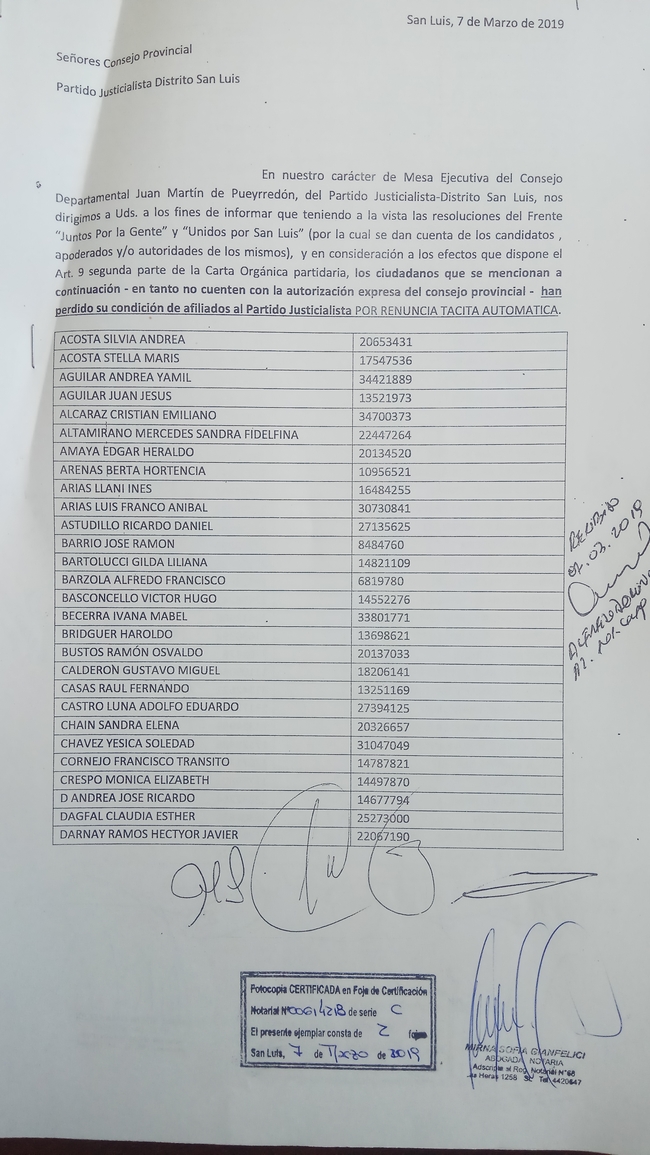 San Luis, 7 de Marzo de 2019
Señores Consejo Provincial
Partido Justicialista Distrito San Luis
En nuestro carácter de Mesa Ejecutiva del Consejo
Departamental Juan Martín de Pueyrredón, del Partido Justicialista-Distrito San Luis, nos
dirigimos a Uds. a los fines de informar que teniendo a la vista las resoluciones del Frente
"Juntos Por la Gente" y "Unidos por San Luis" (por la cual se dan cuenta de los candidatos ,
apoderados y/o autoridades de los mismos), y en consideración a los efectos que dispone el
Art. 9 segunda parte de la Carta Orgánica partidaria, los ciudadanos que se mencionan a
continuación - en tanto no cuenten con la autorización expresa del consejo provincial - han
perdido su condición de afiliados al Partido Justicialista POR RENUNCIA TACITA AUTOMATICA.
ACOSTA SILVIA ANDREA 20653431
ACOSTA STELLA MARIS 17547536
AGUILAR ANDREA YAMIL 34421889
AGUILAR JUAN JESUS 13521973
ALCARAZ CRISTIAN EMILIANO 34700373
ALTAMIRANO MERCEDES SANDRA FIDELFINA 22447264
AMAYA EDGAR HERALDO 20134520
ARENAS BERTA HORTENCIA 10956521
ARIAS LLANI INES 16484255
ARIAS LUIS FRANCO ANIBAL 30730841
ASTUDILLO RICARDO DANIEL 27135625
BARRIO JOSE RAMON 8484760
BARTOLUCCI GILDA LILIANA 14821109
BARZOLA ALFREDO FRANCISCO 6819780
BASCONCELLO VICTOR HUGO 14552276
BECERRA IVANA MABEL 33801771
BRIDGUER HAROLDO 13698621
BUSTOS RAMÓN OSVALDO 20137033
CALDERON GUSTAVO MIGUEL 18206141
CASAS RAUL FERNANDO 13251169
CASTRO LUNA ADOLFO EDUARDO 27394125
CHAIN SANDRA ELENA 20326657
CHAVEZ YESICA SOLEDAD 31047049
CORNEJO FRANCISCO TRANSITO 14787821
CRESPO MONICA ELIZABETH 14497870
D ANDREA JOSE RICARDO 14677794
DAGFAL CLAUDIA ESTHER 25273000
DARNAY RAMOS HECTYOR JAVIER 22067190
RECIBIDO
07.03.2019
Fotocopia CERTIFICADA en Foja de Certificación
Notarial Nº de serie C
El presente ejemplar consta de 2 fojas
San Luis, 7 de Marzo de 2019
MIRNA SOFIA GIANFELICI
ABOGADA NOTARIA
Adscripta al Reg. Notarial Nº68
Heras 1258 Tel. 4420647